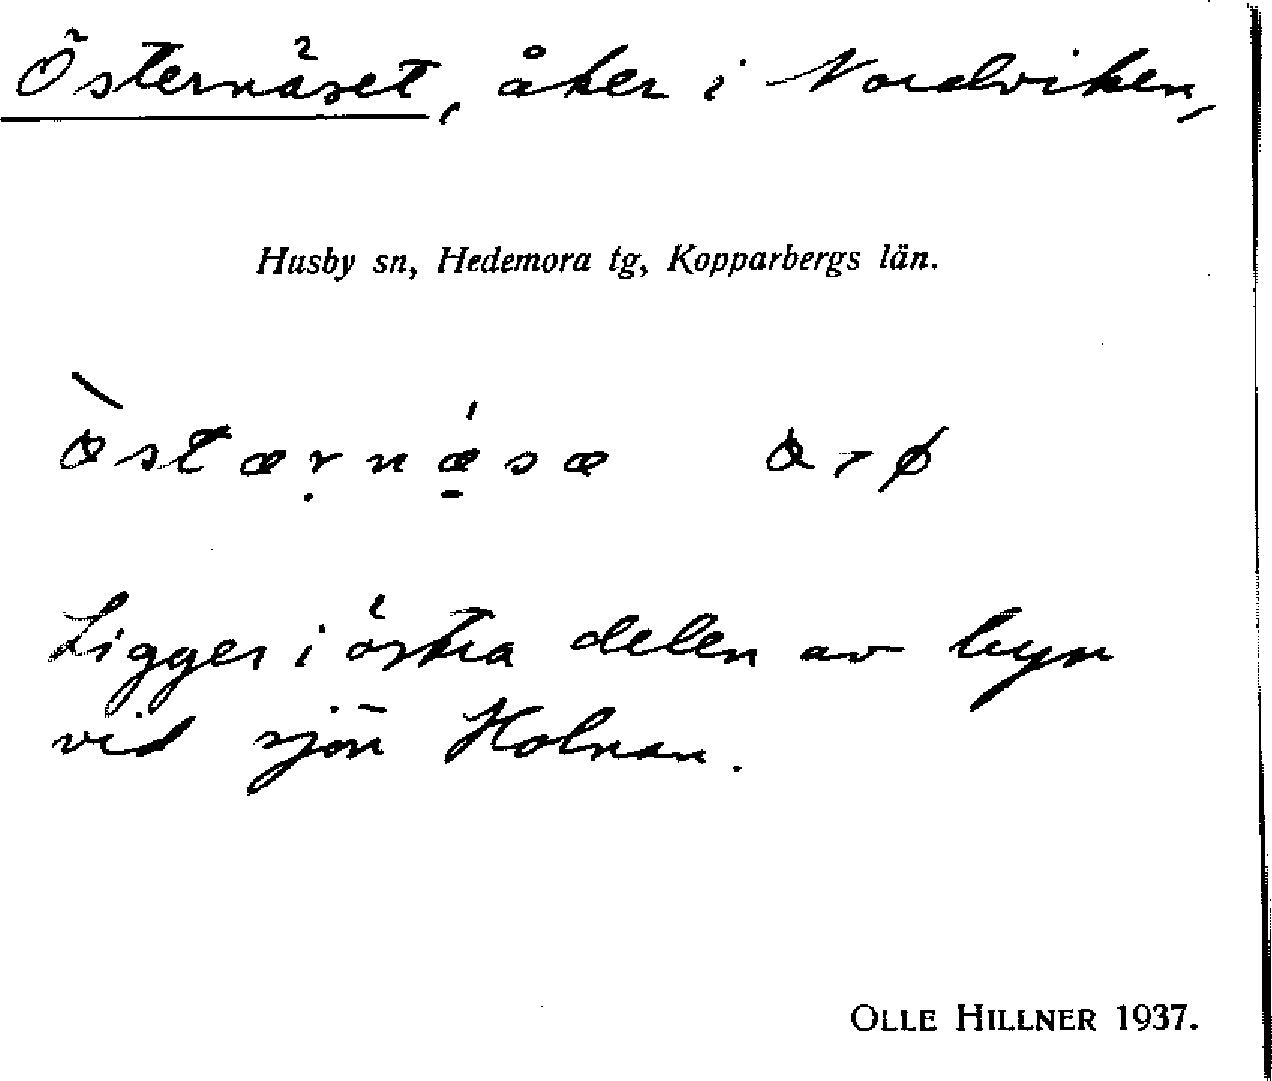 Östernäset, åker i Nordviken,
Husby sn, Hedemora tg, Kopparbergs län.
Ligger i östra delen av byn
vid sjön Holnan.
OLLE HILLNER 1937.